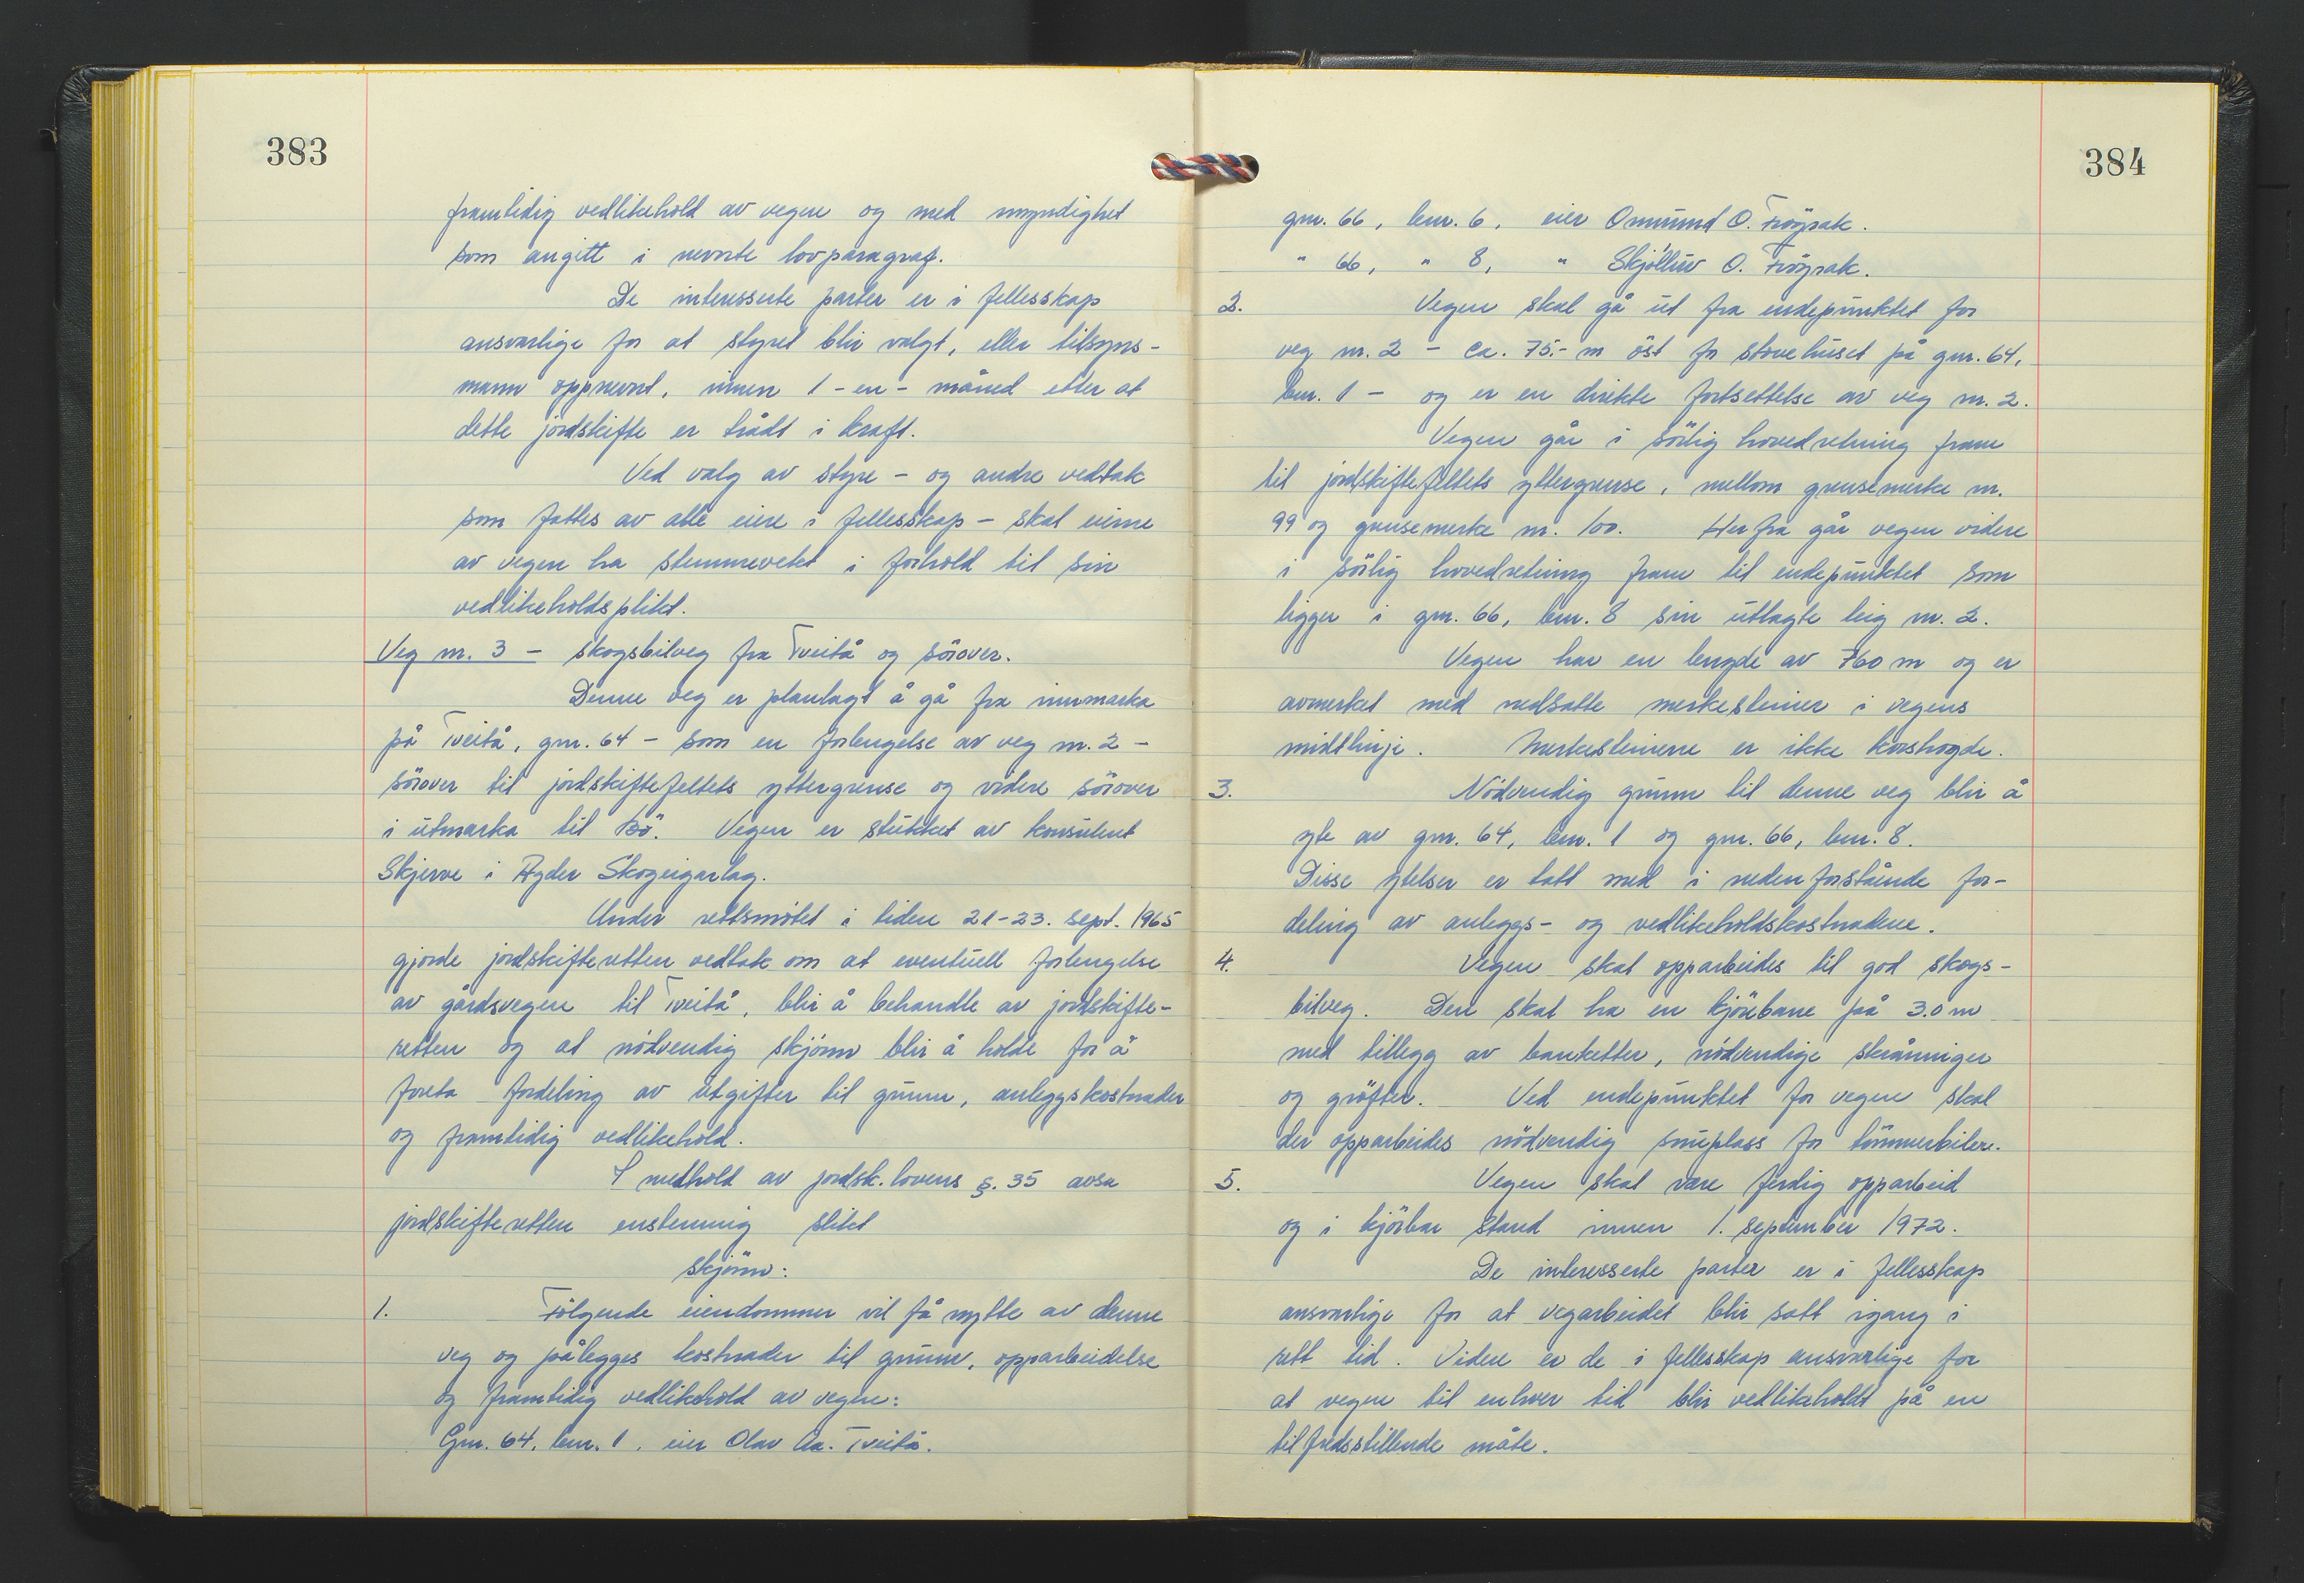 383
framtidig vedlikehold av vegen og med myndighet
som angitt i nevnte lovparagraf.
De interesserte parter er i fellesskap
ansvarlige for at styret blir valgt, eller tilsyns-
mann oppnevnt, innen 1 - en - måned etter at
dette jordskifte er trådt i kraft.
Ved valg av styre - og andre vedtak
som fattes av alle eiere i fellesskap - skal eierne
av vegen ha stemmevekt i forhold til sin
vedlikeholdsplikt.
Veg nr. 3 - skogsbilveg fra Tveitå og sörover.
Denne veg er planlagt å gå fra innmarka
på Tveitå, gnr. 64 - som en forlengelse av veg nr. 2 -
sörover til jordskiftefeltets yttergrense og videre sörover
i utmarka til Bö. Vegen er stukket av konsulent
Skjerve i Agder Skogeigarlag.
Under rettsmötet i tiden 21-23. sept. 1965
gjorde jordskifteretten vedtak om at eventuell forlengelse
av gårdsvegen til Tveitå, blir å behandle av jordskifte-
retten og at nödvendig skjönn blir å holde for å
foreta fordeling av utgifter til grunn, anleggskostnader
og framtidig vedlikehold.
I medhold av jordsk.lovens §. 35 avsa
jordskifteretten enstemmig slikt
skjönn:
1. Fölgende eiendommer vil få nytte av denne
veg og pålegges kostnader til grunn, opparbeidelse
og framtidig vedlikehold av vegen:
Gnr. 64, bnr. 1, eier Olav Aa. Tveitå.
384
gnr. 66, bnr. 6, eier Ommund O. Fröysak.
" 66, " 8, " Skjöllüv O. Fröysak.
2. Vegen skal gå ut fra endepunktet for
veg nr. 2 - ca. 75.- m öst for stovehuset på gnr. 64,
bnr. 1 - og er en direkte fortsettelse av veg nr. 2.
Vegen går i sörlig hovedretning fram
til jordskiftefeltets yttergrense, mellom grensemerke nr.
99 og grensemerke nr. 100. Herfra går vegen videre
i sörlig hovedretning fram til endepunktet som
ligger i gnr. 66, bnr. 8 sin utlagte teig nr. 2.
Vegen har en lengde av 760 m og er
avmerket med nedsatte merkesteiner i vegens
midtlinje. Merkesteinene er ikke korshogde.
3. Nödvendig grunn til denne veg blir å
yte av gnr. 64, bnr. 1 og gnr. 66, bnr. 8.
Disse ytelser er tatt med i nedenforstående for-
deling av anleggs- og vedlikeholdskostnadene.
4. Vegen skal opparbeides til god skogs-
bilveg. Den skal ha en kjörebane på 3.0 m
med tillegg av banketter, nödvendige skråninger
og gröfter. Ved endepunktet for vegen skal
der opparbeides nödvendig snuplass for tömmerbiler.
5. Vegen skal være ferdig opparbeid
og i kjörbar stand innen 1. september 1972.
De interesserte parter er i fellesskap
ansvarlige for at vegarbeidet blir satt igang i
rett tid. Videre er de i fellesskap ansvarlige for
at vegen til enhver tid blir vedlikeholdt på en
tilfredsstillende måte.